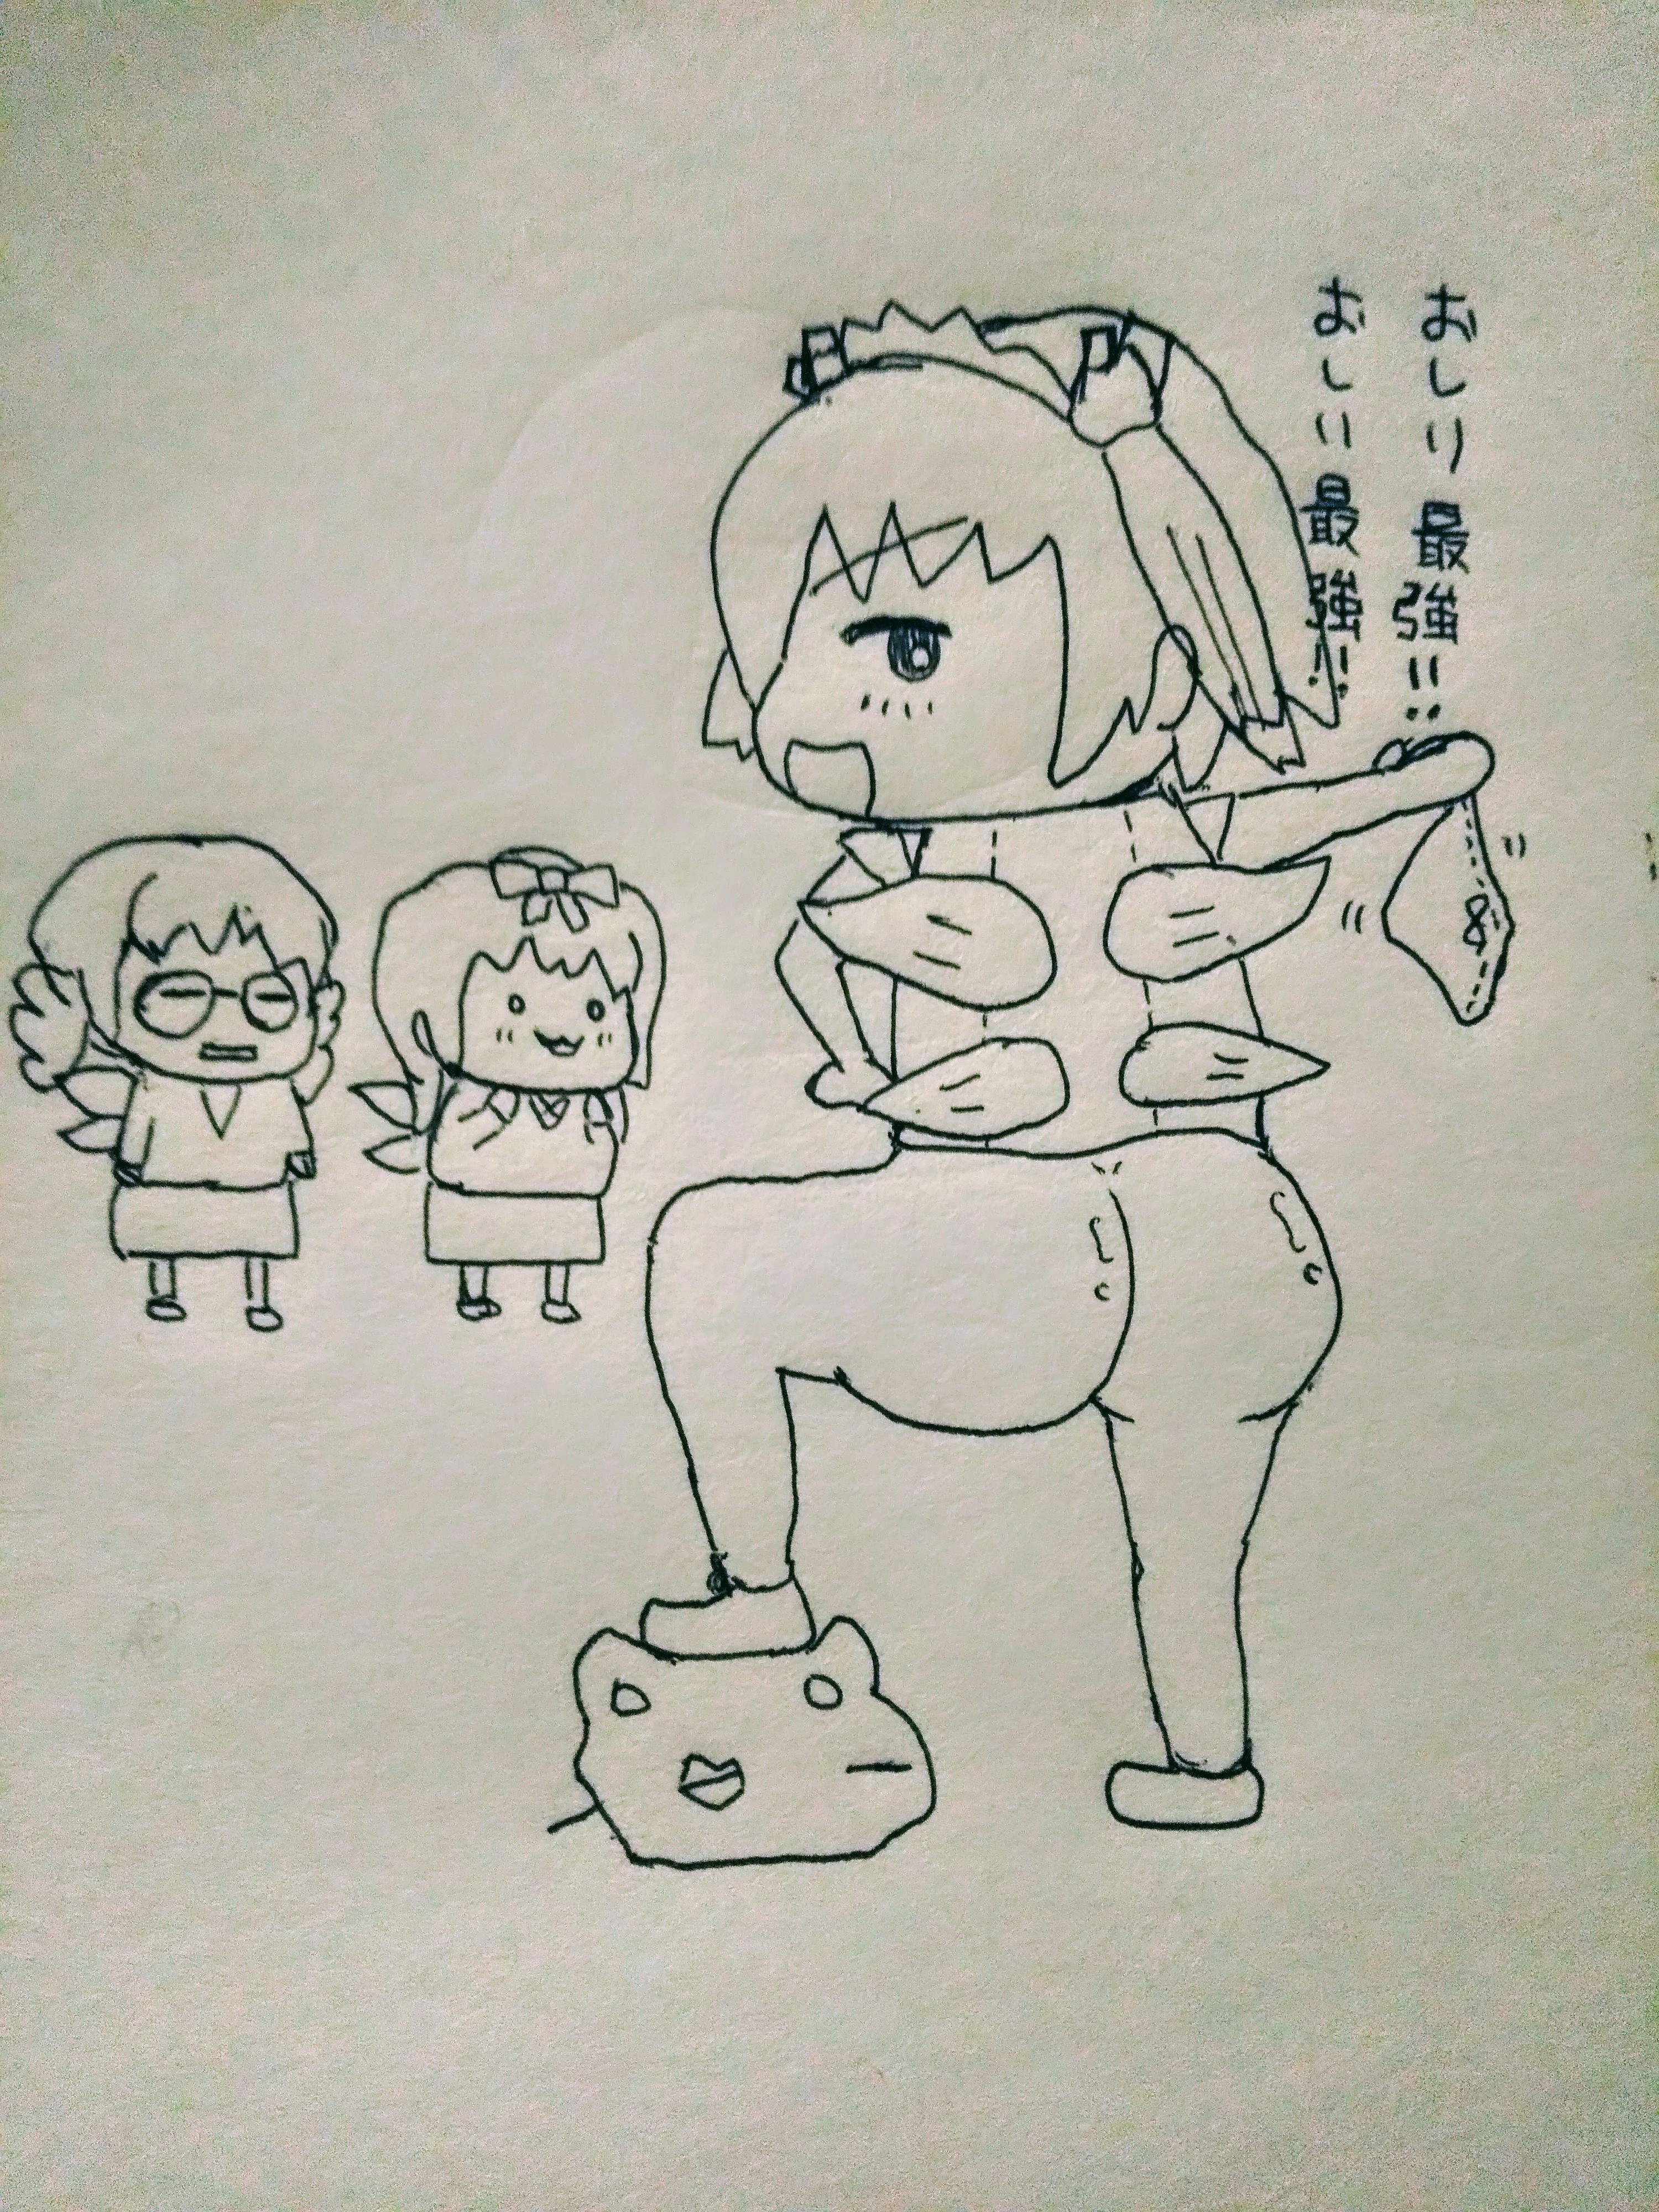 おしり最強!!
おしり最強!!
8